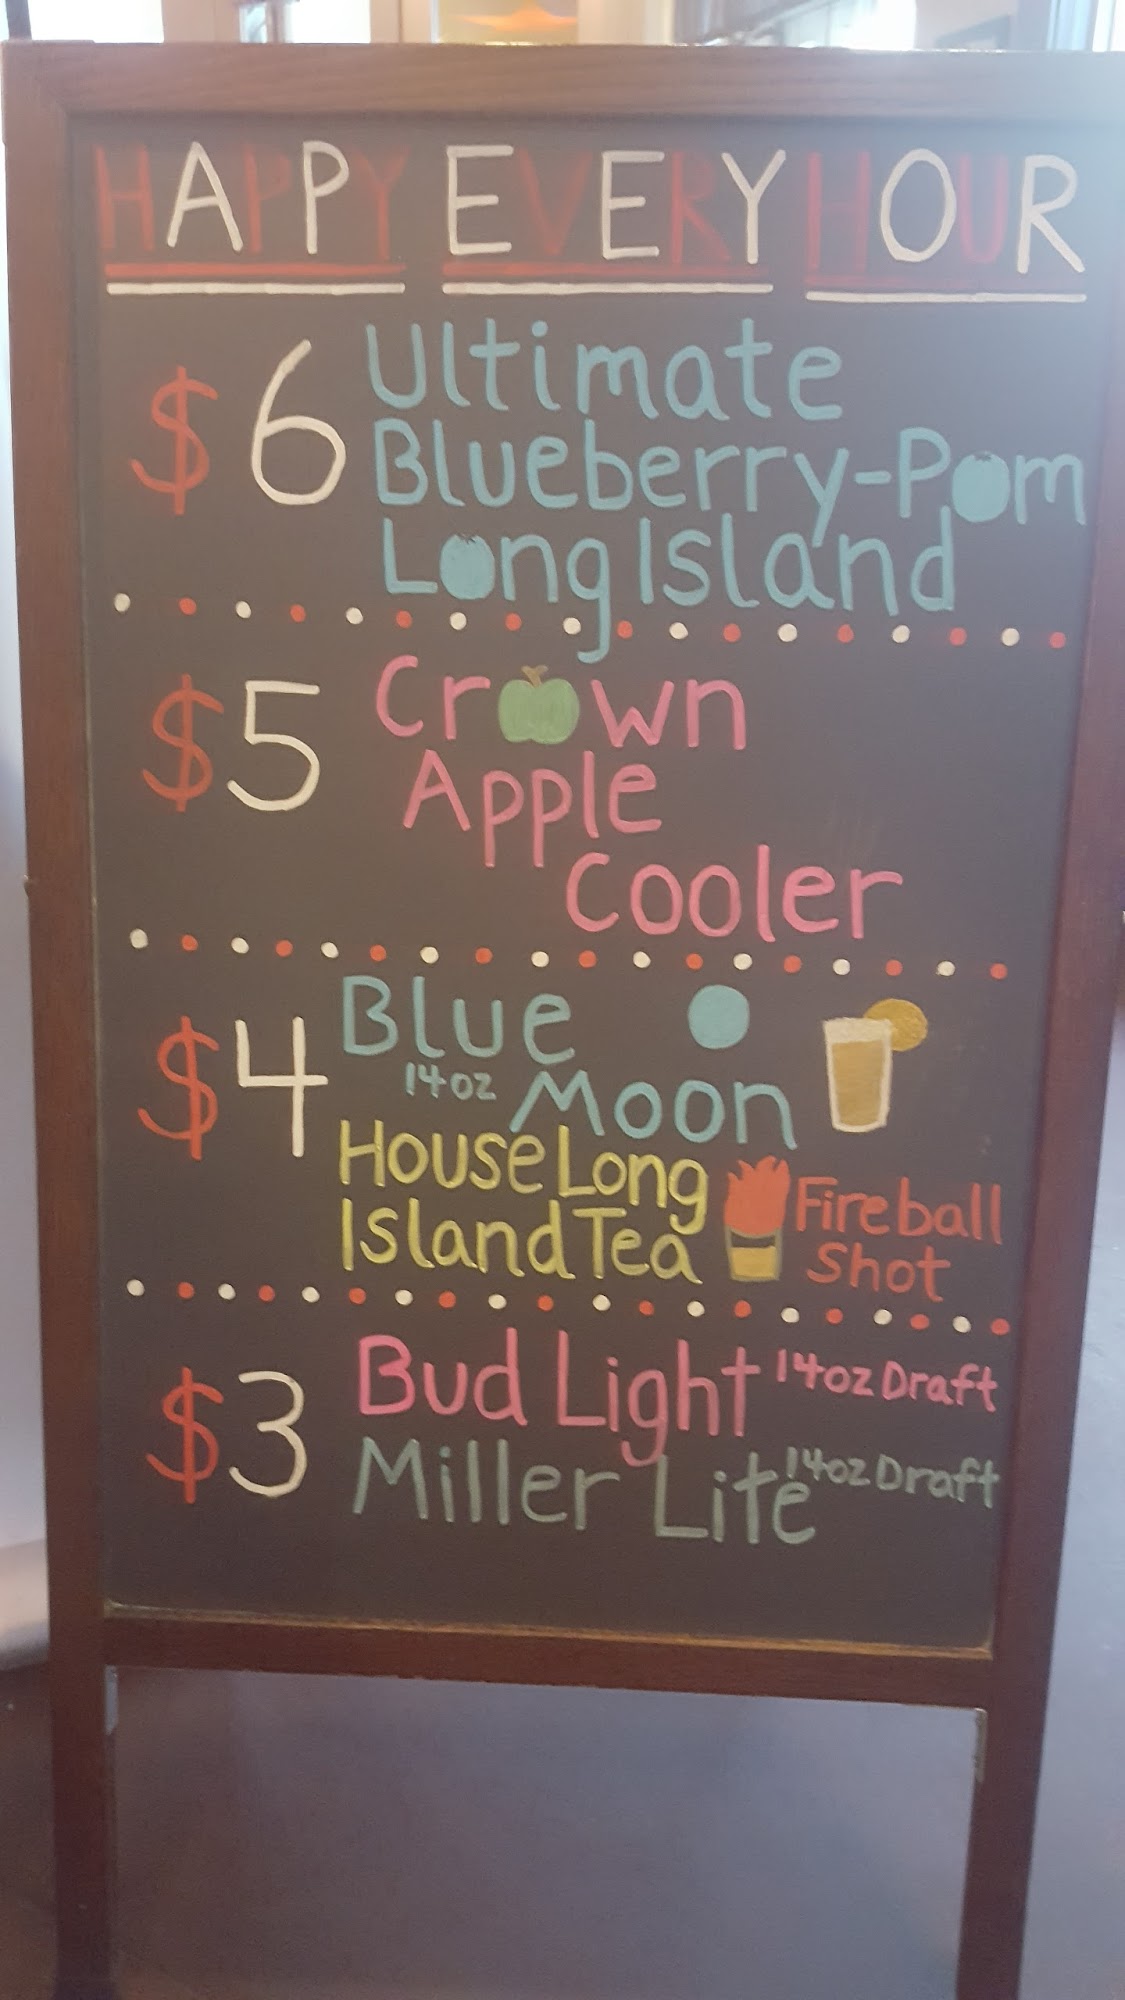 HAPPY EVERY HOUR
$6 Ultimate
Blueberry-Pom
Long Island
$5 Crown
Apple
Cooler
$4 Blue
14oz Moon
House Long
Island Tea
Fireball
Shot
$3 Bud Light 14oz Draft
Miller Lite 14oz Draft